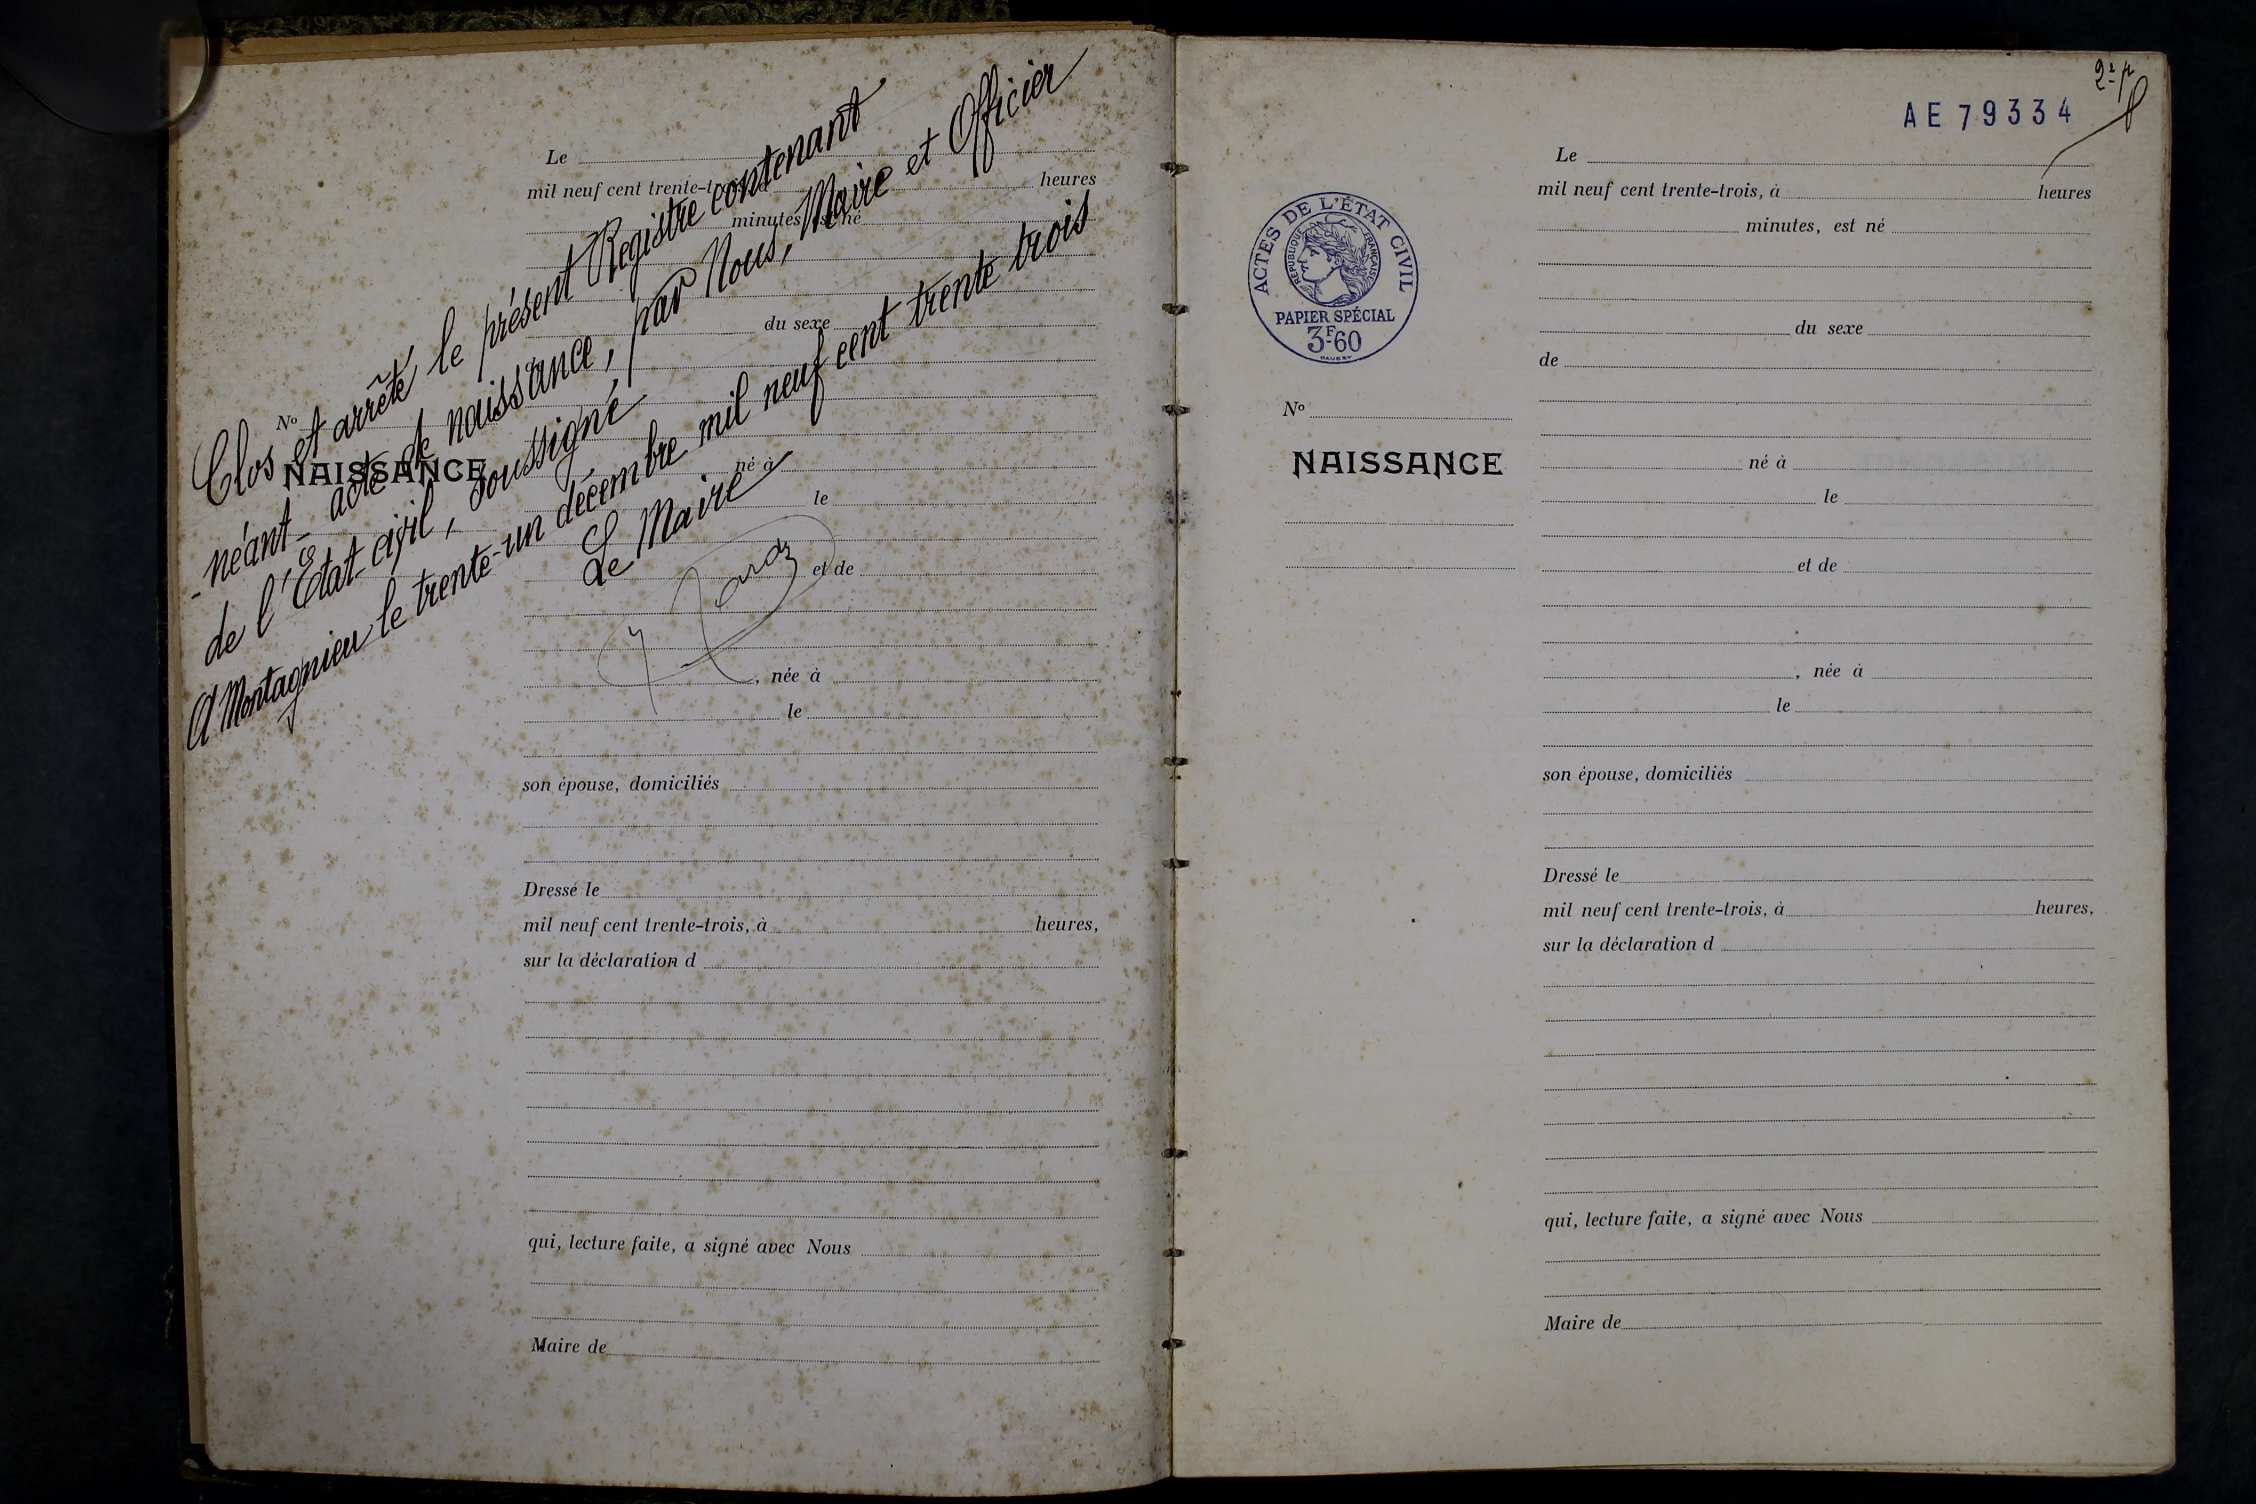 Clos et arrêté le présent Registre contenant
- néant - acte de naissance, par Nous, Maire et Officier
de l'Etat-civil, soussigné
A Montagnieu le trente-un décembre mil neuf cent trente trois
Le Maire
Le
mil neuf cent trente-trois, à heures
minutes, est né
du sexe
No
NAISSANCE
né à
le
et de
, née à
le
son épouse, domiciliés
Dressé le
mil neuf cent trente-trois, à heures,
sur la déclaration d
qui, lecture faite, a signé avec Nous
Maire de
AE 79334
ACTES DE L'ÉTAT CIVIL
RÉPUBLIQUE FRANÇAISE
PAPIER SPÉCIAL
3F60
Le
mil neuf cent trente-trois, à heures
minutes, est né
du sexe
de
No
NAISSANCE
né à
le
et de
, née à
le
son épouse, domiciliés
Dressé le
mil neuf cent trente-trois, à heures,
sur la déclaration d
qui, lecture faite, a signé avec Nous
Maire de